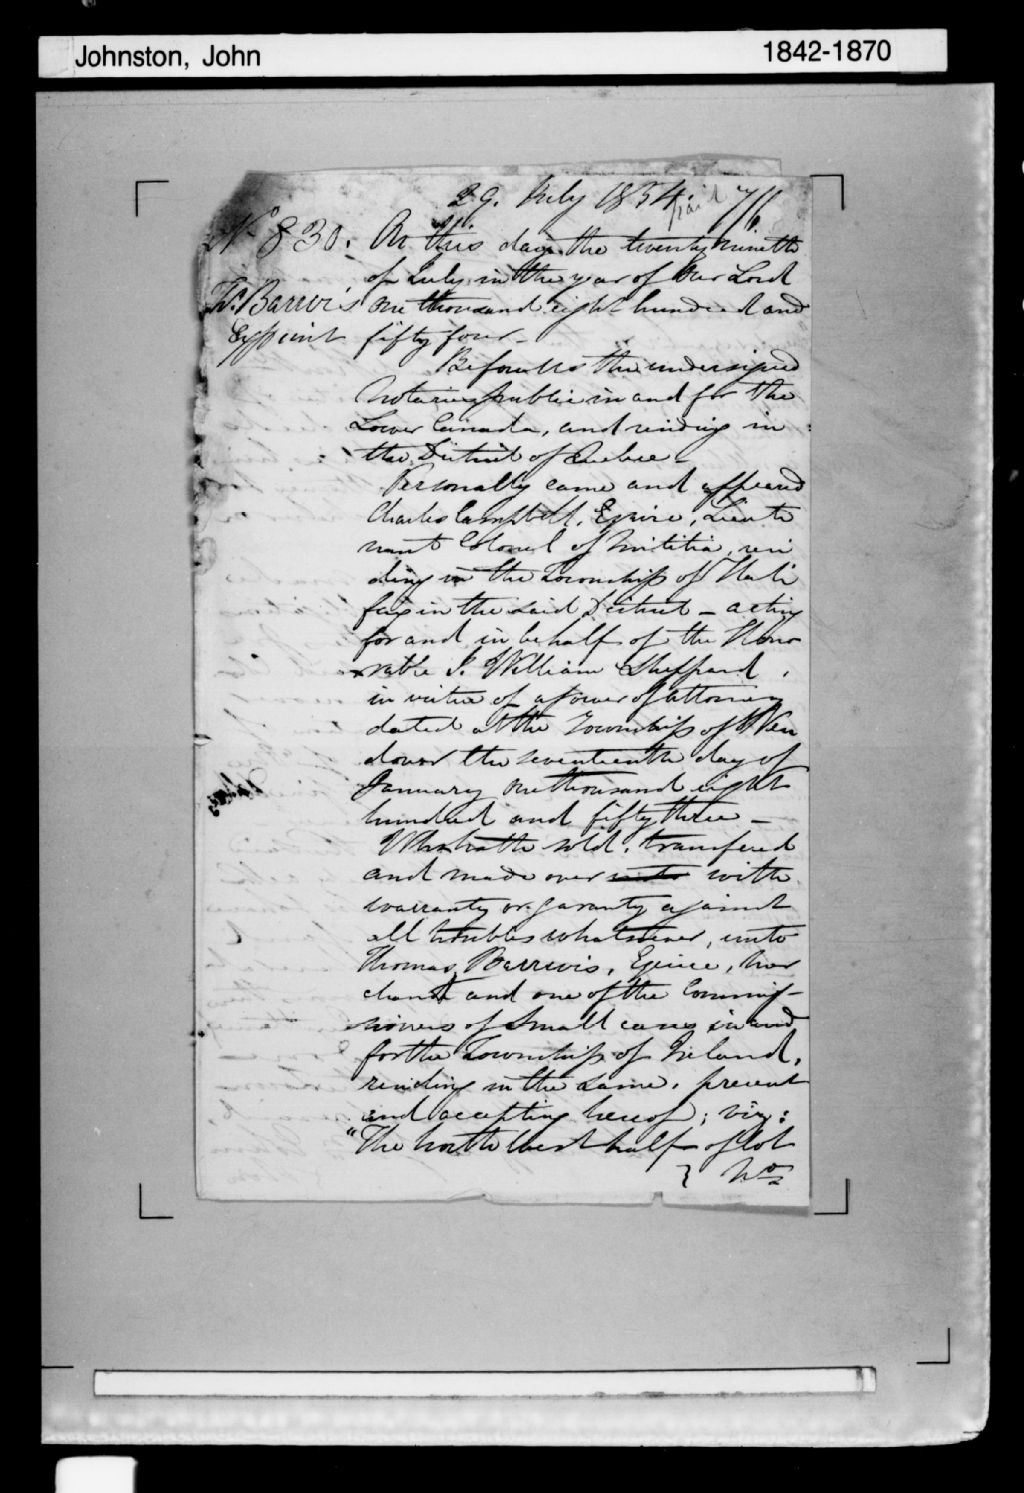 Johnston, John 1842-1870
29. July 1854. paid 7/6
No 830. On this day the twenty nineth
of July in the year of Our Lord
Ts. Barrwis one thousand eight hundred and
fifty four -
Before Us the undersigned
Notaries public in and for the
Lower Canada, and residing in
the District of Quebec -
Personally came and appeared
Charles Campbell, Esquire, Lieute
nant Colonel of Militia, resi
ding in the Township of Hali
fax in the said District - acting
for and in behalf of the Hono
rable William Sheppard,
in virtue of a power of attorney
dated at the Township of Wen
dover the seventeenth day of
January one thousand eight
hundred and fifty three -
Who hath sold, transfered
and made over unto with
warranty or garanty against
all troubles whatsoever, unto
Thomas Barrwis, Esquire, mer
chant and one of the Commis-
sioners of Small causes in and
for the Township of Ireland,
residing in the same, present
and accepting hereof; viz:
"The North West half of lot
} No